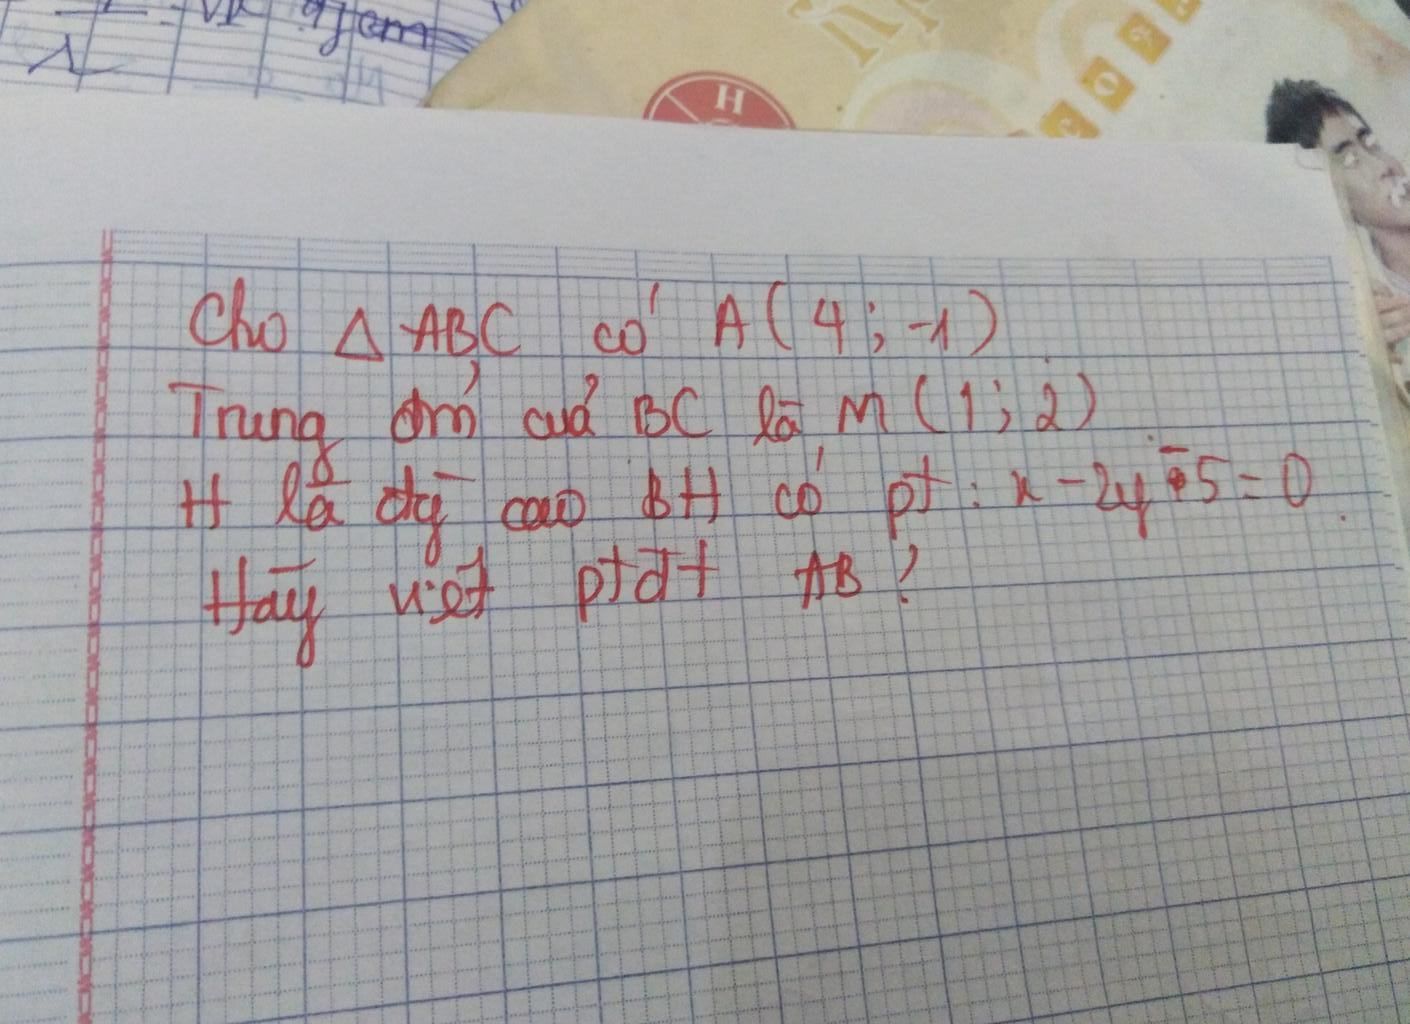 H
Cho Δ ABC có A(4;-1)
Trung đm của BC là M(1;2)
H là đg cao BH có pt: x-2y-5=0.
Hãy viết ptđt AB?